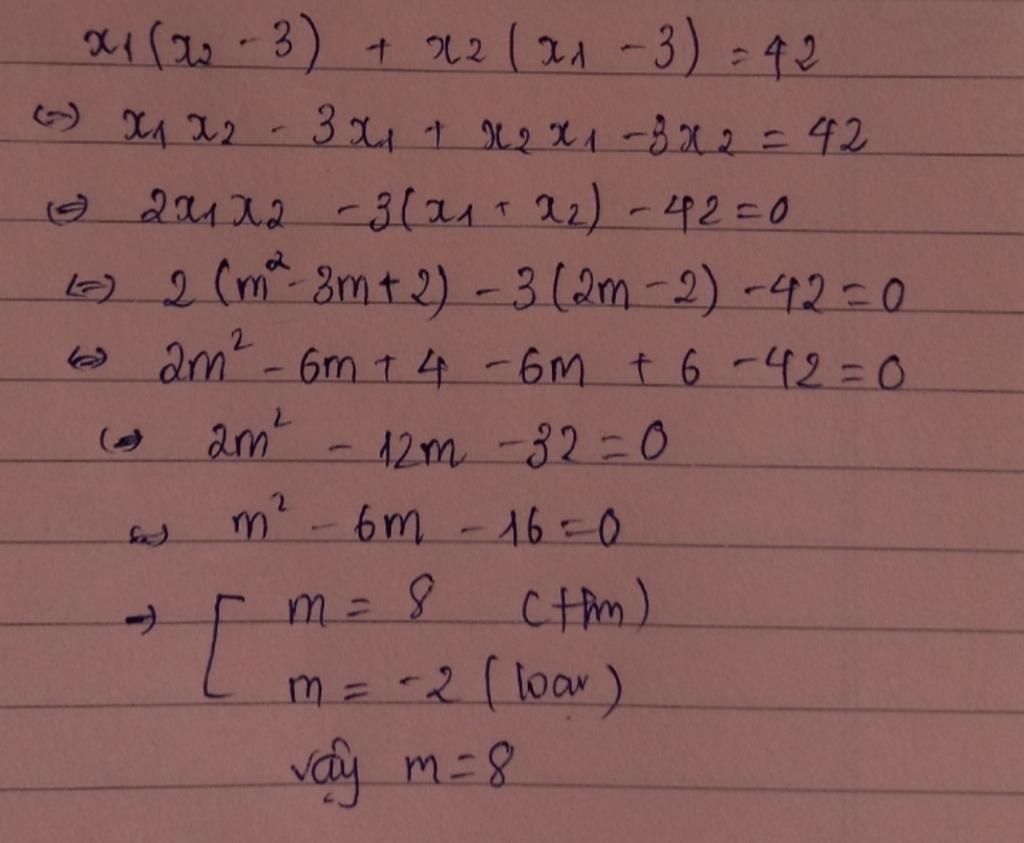 x1(x2 - 3) + x2(x1 - 3) = 42
<=> x1x2 - 3x1 + x2x1 - 3x2 = 42
<=> 2x1x2 - 3(x1 + x2) - 42 = 0
<=> 2(m² - 3m + 2) - 3(2m - 2) - 42 = 0
<=> 2m² - 6m + 4 - 6m + 6 - 42 = 0
<=> 2m² - 12m - 32 = 0
<=> m² - 6m - 16 = 0
=> [ m = 8 (thm)
m = -2 (loại)
vậy m = 8